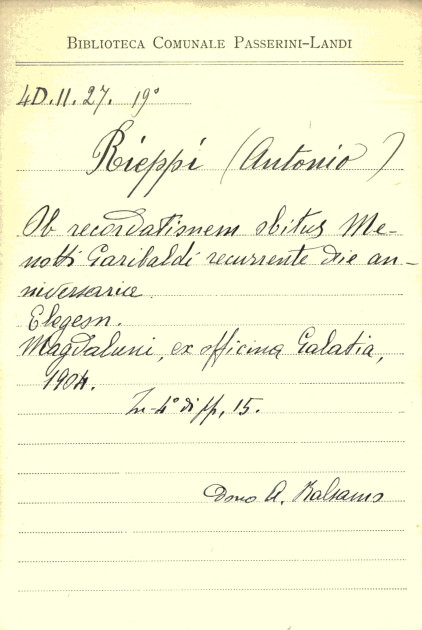 BIBLIOTECA COMUNALE PASSERINI-LANDI
4D.II.27. 19°
Rieppi (Antonio)
Ob recordationem obitus Me-
notti Garibaldi recurrente die an-
niversaria
Elegeon.
Magdaluni, ex officina Galatia,
1904.
In-4° di pp. 15.
Dono A. Balsamo